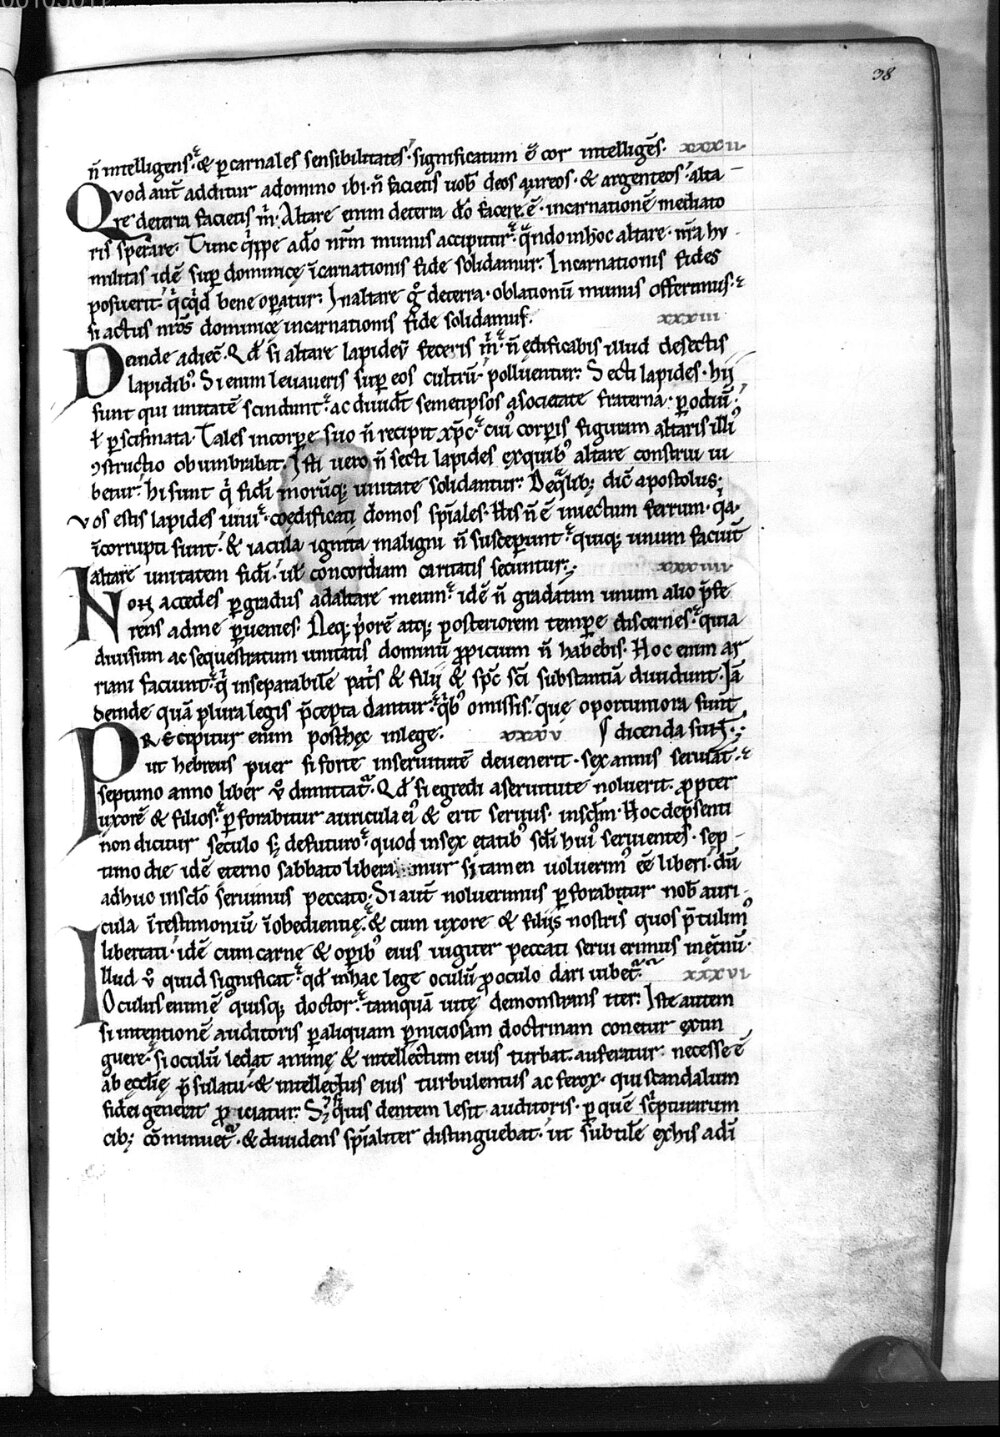 38
n̄ intelligens. & p carnales sensibilitates. significatum ē cor intelligēs. xxxii
Quod aut̄ additur a domino ibi. n̄ facietis uob̄ deos aureos. & argenteos. alta-
re de terra facietis m̄. Altare enim de terra dō facere. ē. incarnationē mediato
ris sperare. Tunc q̄ppe a dō nr̄m munus accipitur. q̄ndo in hoc altare. nr̄a hu-
militas idē sup̄ dominicę īcarnationis fide solidamur. Incarnationis fides
posuerit. q̄cq̄d bene op̄atur. In altare g̊ de terra. oblationū munus offerimus.
si actus nr̄os dominicæ incarnationis fide solidamus. xxxiii
Deinde adiec̄. Qd̄ si altare lapideū feceris m̄. n̄ edificabis illud de sectis
lapidib;. Si enim leuaueris sup̄ eos cultrū. polluentur. Secti lapides. hii
sunt qui unitatē scindunt. ac diuidt̄ semetipsos a societate fraterna. p odiū.
ł p scismata. Tales in corpe suo n̄ recipit xp̄c. cui' corporis figuram altaris illi'
ɔstructio obumbrabat. Isti uero n̄ secti lapides ex quib' altare construi iu
betur. hi sunt q̄ fidei morūq; unitate solidantur. De q̄lib; dic̄ apostolus.
vos estis lapides uiui. coedificati domos sp̄iales. His n̄ ē iniectum ferrum. q̄a.
īcorrupti sunt. & iacula ignita maligni n̄ susceperunt. quiq; unum faciūt
altare unitatem fidei. uł concordiam caritatis secuntur. xxxiiii
Non accedes p gradus ad altare meum. idē n̄ gradatim unum alio p̄fe
rens ad me peruenies. Neq; p'orē atq; posteriorem tempe discernes. quia
diuisum ac sequestratum unitatis dominū propicium n̄ habebis. Hoc enim ar
riani faciunt. q̄ inseparabilē pat's & filii & sp̄c sc̄i substantiā diuidunt. Iā
deinde quā plura legis p̄cepta dantur. q̄b' omissis. que oportuniora sunt
Precipitur enim posthęc in lege. xxxv dicenda sunt.
ut hebreus puer si forte in seruitutē deuenerit. sex annis seruiat.
septimo anno liber ū dimittat̄. Qd̄ si egredi a seruitute noluerit. propter
uxorē & filios. pforabitur auricula ei' & erit seruus. in sc̄lm. Hoc de p̄senti
non dicitur seculo sȝ de futuro. quod in sex etatib' scli hui' seruientes. sep-
timo die idē eterno sabbato liberamur si tamen uoluerim' eē liberi. dū
adhuc in sc̄lo seruimus peccato. Si aut̄ noluerimus pforabitur nob̄ auri-
cula ī testimoniū īobedientię. & cum uxore & filiis nostris quos p̄tulim'
libertati. idē cum carne & op̄ib' eius iugiter peccati serui erimus in ęt̄nū.
Illud ū quid significat. qd̄ in hac lege oculū pro oculo dari iubet̄. xxxvi
Oculus enim ē quisq; doctor. tamquā uitę demonstrans iter. Iste autem
si intentionē auditoris p aliquam pniciosam doctrinam conetur extin
guere. si oculū ledat animę & intellectum eius turbat. auferatur. necesse ē
ab ęccl̄ię p̄sulatu. & intellectus eius turbulentus ac ferox. qui scandalum
fidei generat proiciatur. Sȝ si quis dentem lesit auditoris. p quē sc'pturarum
cib; cōminuet̄. & diuidens sp̄ialiter distinguebat. ut subtile ex his ad ī